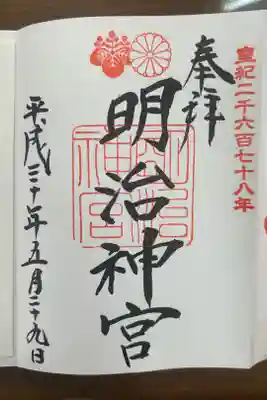 皇紀二千六百七十八年
奉拝
明治神宮
明治神宮
平成三十年五月二十九日